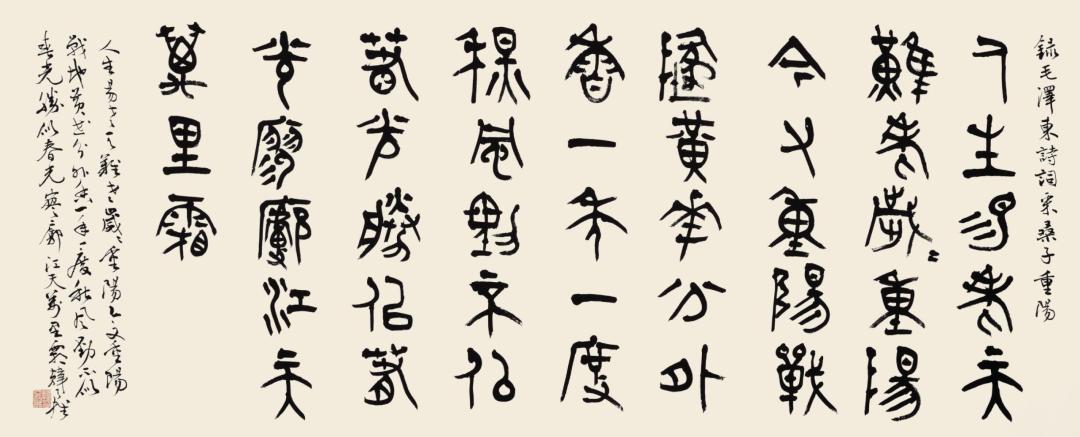 錄毛澤東詩詞采桑子重陽
人生易老天
難老歲〻重陽
今又重陽戰
地黃華分外
香一年一度
秋風勁不佀
春光勝佀春
光寥廓江天
萬里霜
人生易老天難老歲〻重陽今又重陽
戰地黃花分外香一年一度秋風勁不似
春光勝似春光寥廓江天萬里霜